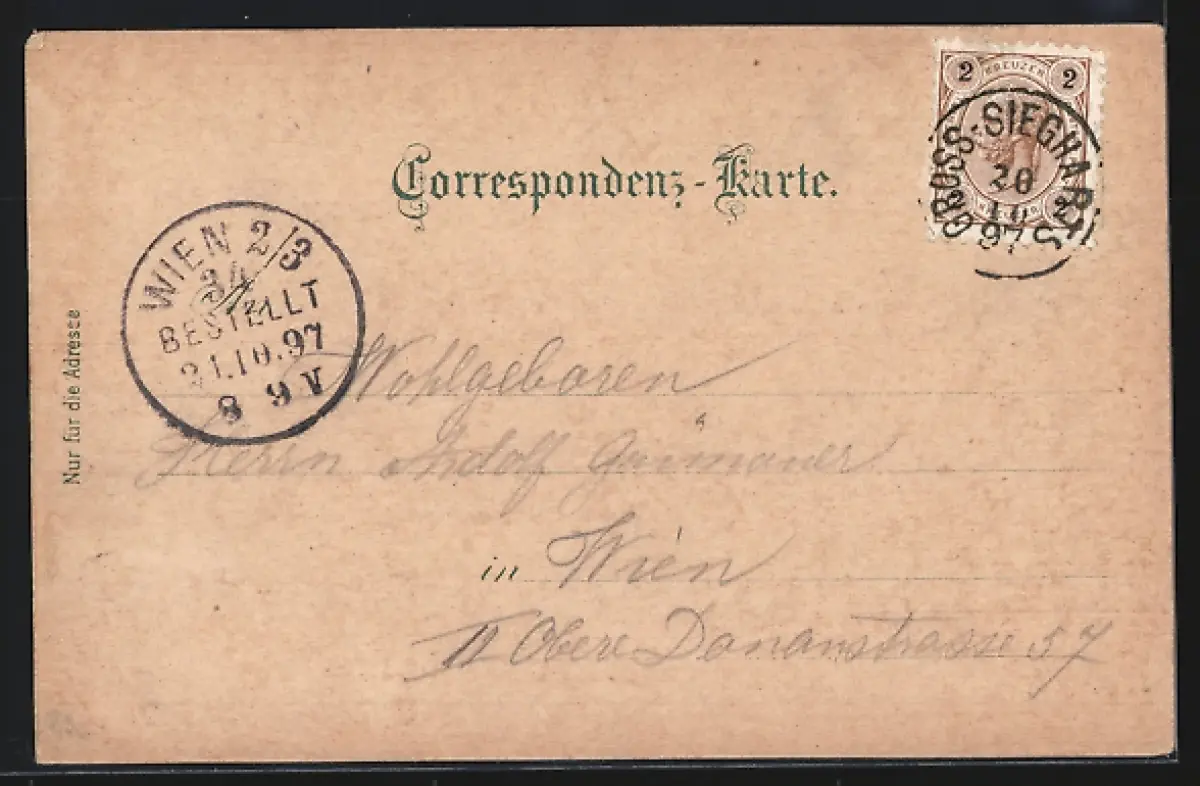 2 KREUZER 2
GROSS-SIEGHARTS
20
10
97
2
Correspondenz-Karte.
WIEN 2/3
BESTELLT
21.10.97
8 9V
Nur für die Adresse
Wohlgeboren
Herrn
in Wien
II Obere Donaustrasse 57